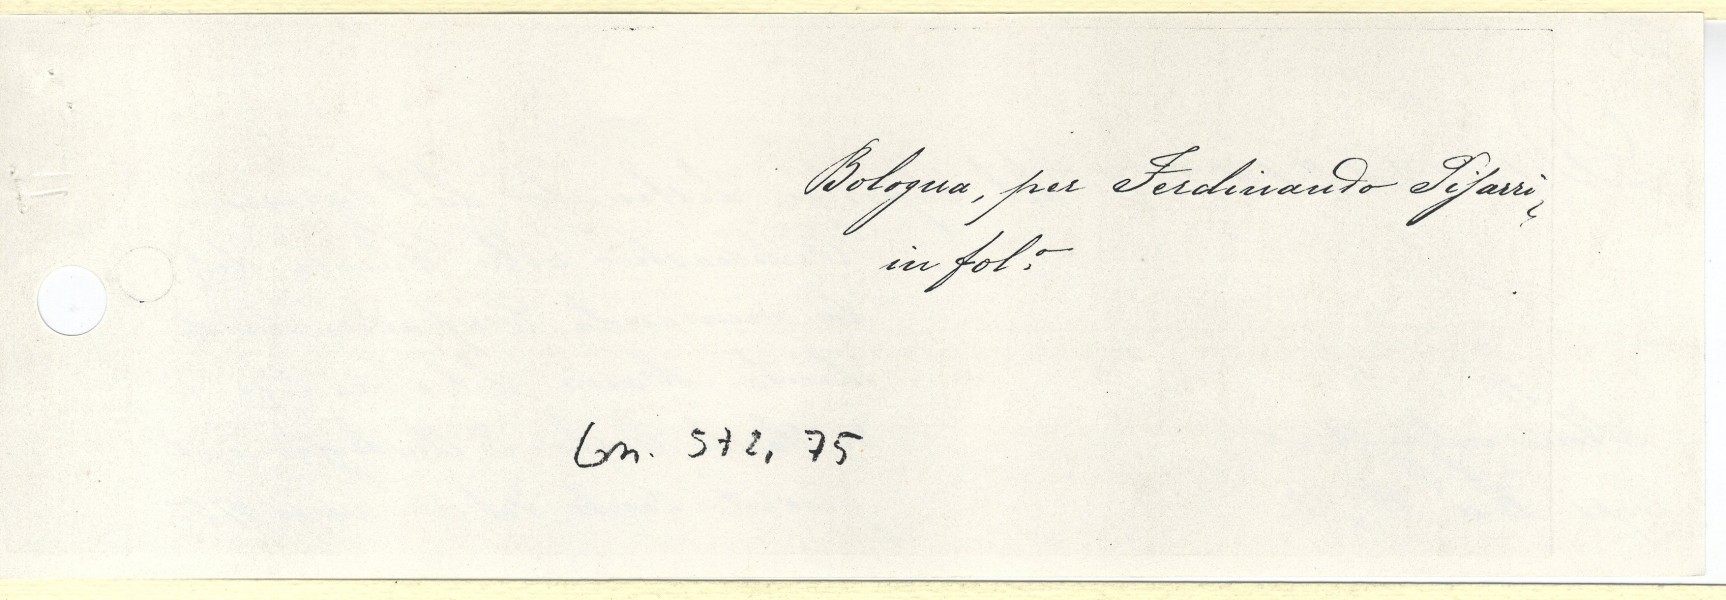 Bologna, per Ferdinando Pisarri,
in fol.º
572, 75